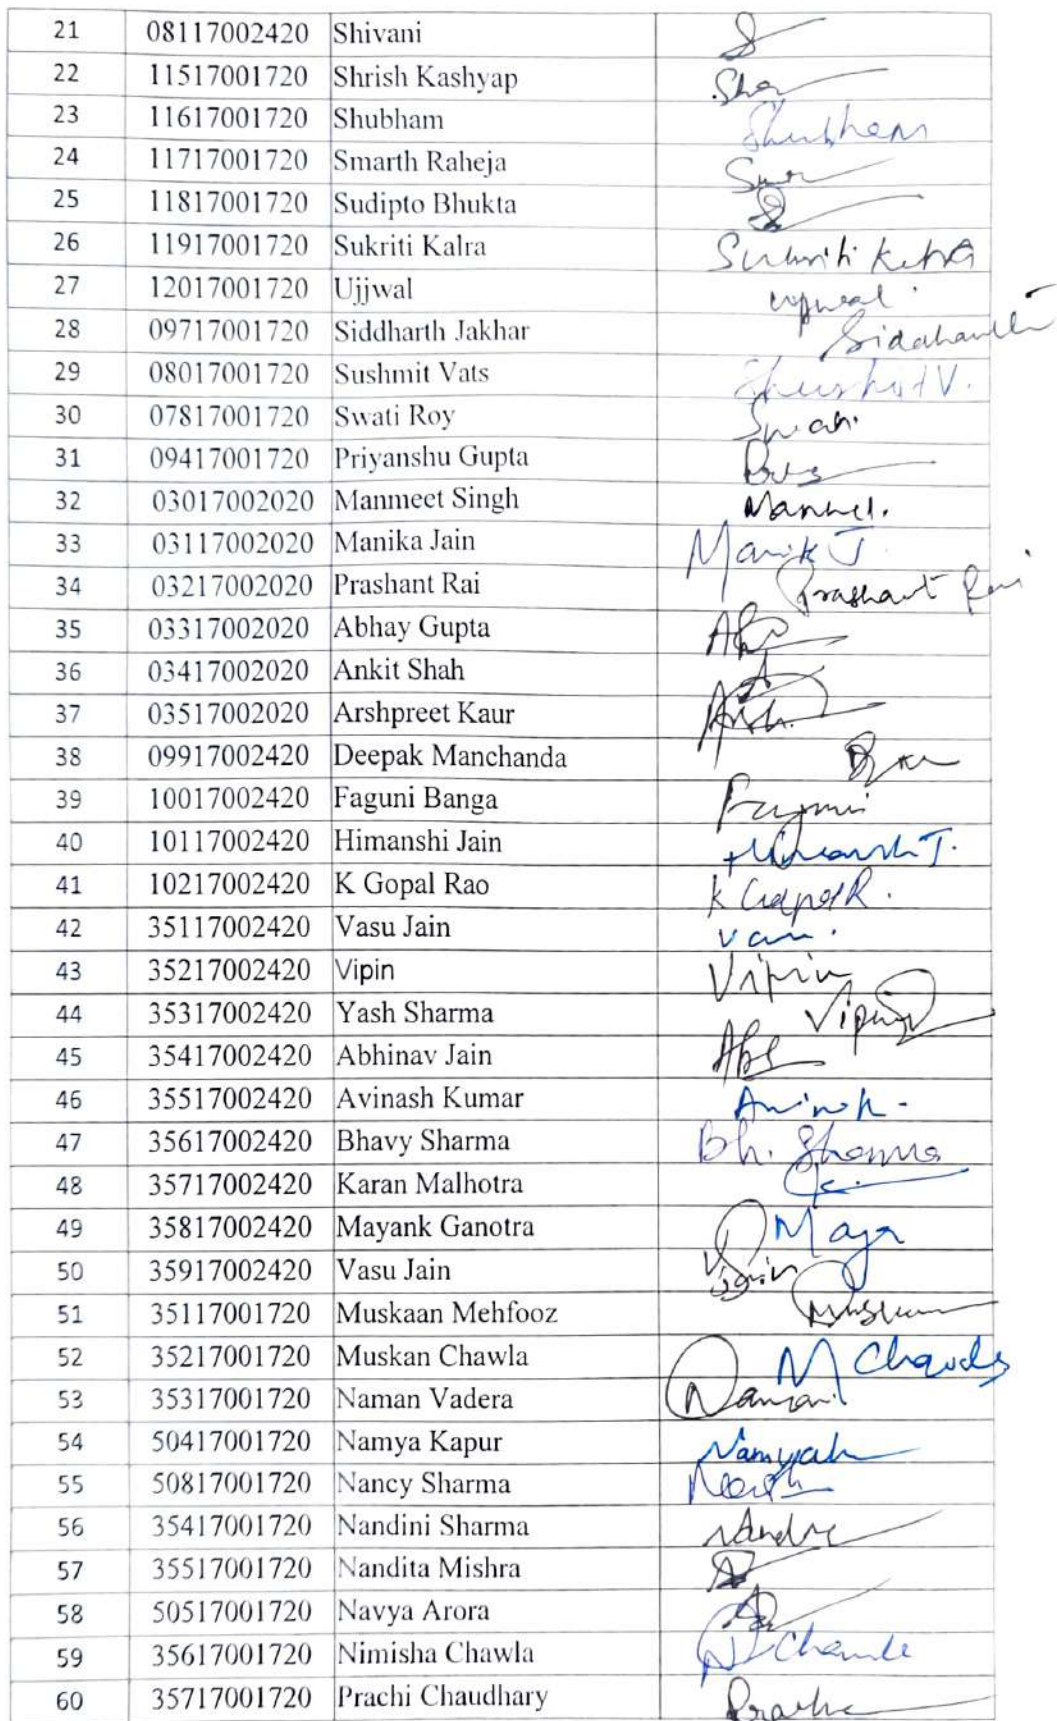 21 08117002420 Shivani
22 11517001720 Shrish Kashyap
23 11617001720 Shubham Shubham
24 11717001720 Smarth Raheja
25 11817001720 Sudipto Bhukta
26 11917001720 Sukriti Kalra Sukriti Kalra
27 12017001720 Ujjwal
28 09717001720 Siddharth Jakhar
29 08017001720 Sushmit Vats
30 07817001720 Swati Roy
31 09417001720 Priyanshu Gupta
32 03017002020 Manmeet Singh
33 03117002020 Manika Jain Manik J.
34 03217002020 Prashant Rai Prashant Rai
35 03317002020 Abhay Gupta
36 03417002020 Ankit Shah
37 03517002020 Arshpreet Kaur
38 09917002420 Deepak Manchanda
39 10017002420 Faguni Banga
40 10117002420 Himanshi Jain
41 10217002420 K Gopal Rao K Gopal R.
42 35117002420 Vasu Jain
43 35217002420 Vipin Vipin
44 35317002420 Yash Sharma
45 35417002420 Abhinav Jain
46 35517002420 Avinash Kumar
47 35617002420 Bhavy Sharma Bh. Sharma
48 35717002420 Karan Malhotra
49 35817002420 Mayank Ganotra
50 35917002420 Vasu Jain
51 35117001720 Muskaan Mehfooz
52 35217001720 Muskan Chawla M Chawla
53 35317001720 Naman Vadera Naman
54 50417001720 Namya Kapur
55 50817001720 Nancy Sharma
56 35417001720 Nandini Sharma
57 35517001720 Nandita Mishra
58 50517001720 Navya Arora
59 35617001720 Nimisha Chawla
60 35717001720 Prachi Chaudhary